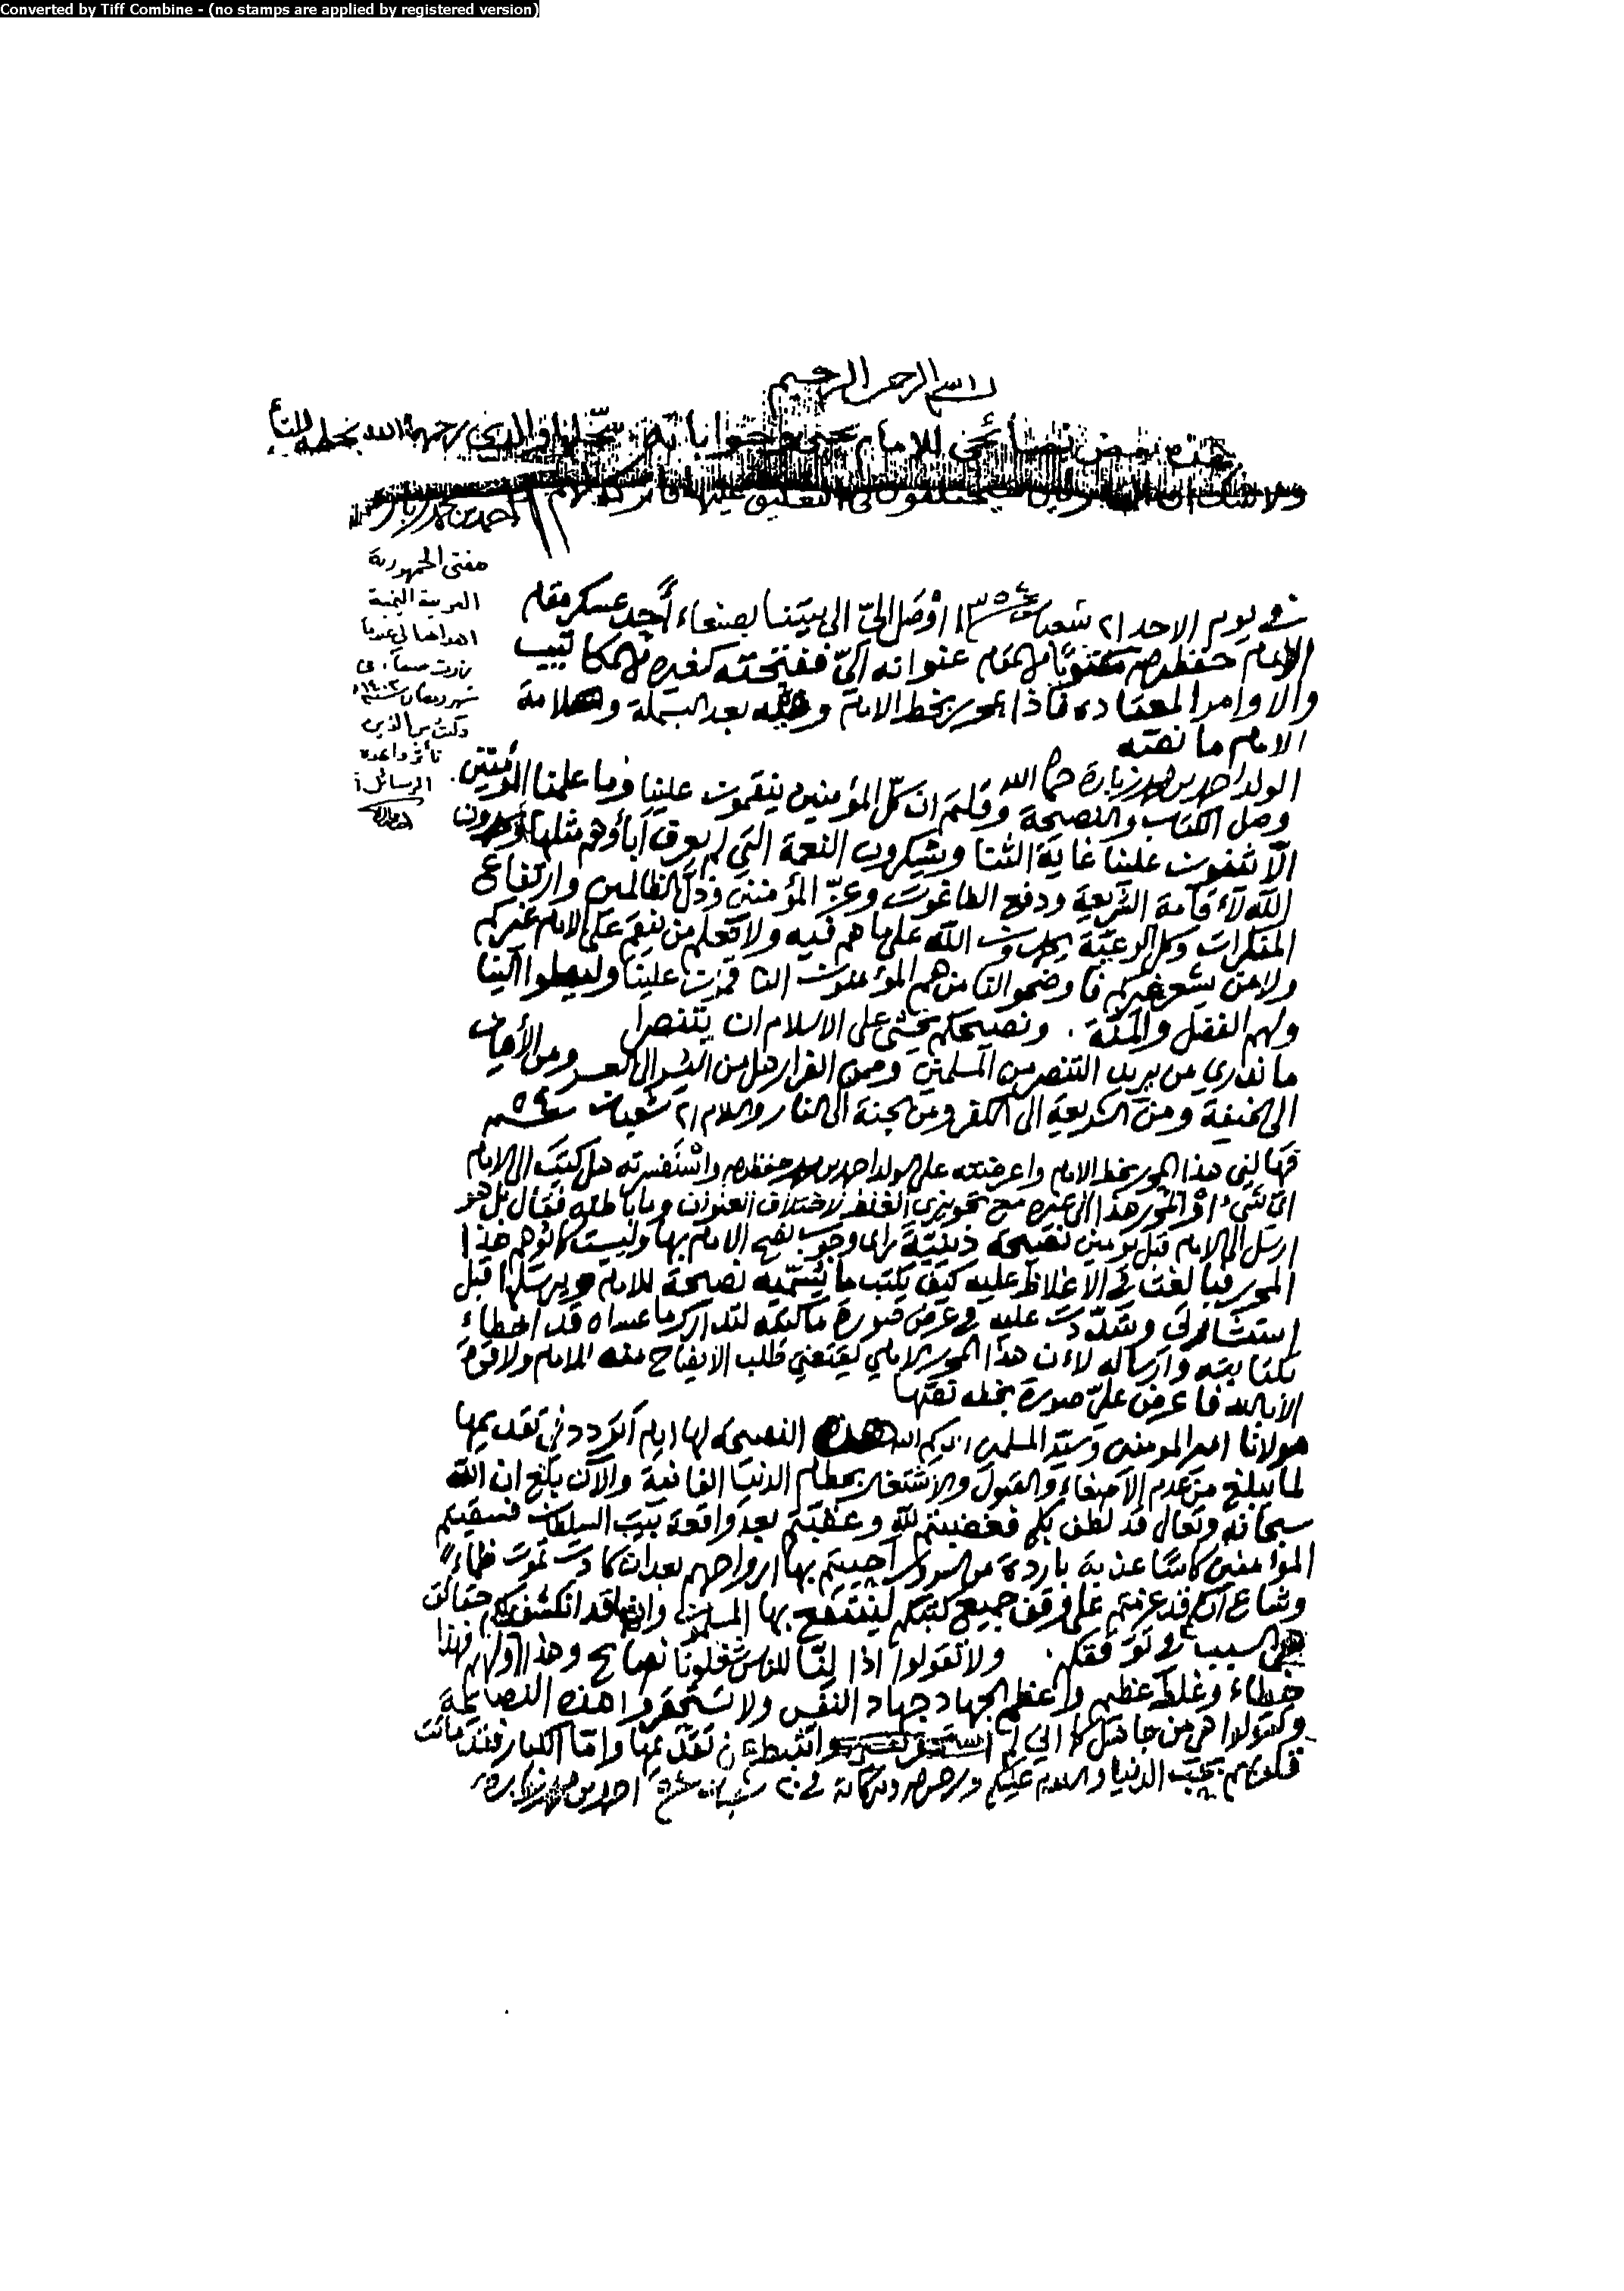 Converted by Tiff Combine - (no stamps are applied by registered version)
بسم الله الرحمن الرحيم
هذه بعض نصائحي للامام يحيى وجواباته سجلها والدي رحمه الله بخطه
ولا شك ان يختلفون في التعليق عليها احمد بن محمد زباره
مفتي الجمهورية
العربية اليمنية
اهداها لي عندما
زرت صنعاء في
شهر رمضان سنة ١٤٠٢
الرسائل
في يوم الاحد ٢١ شعبان سنة ١٣٥٤ اوصل اليّ الى بيتنا بصنعاء أحد عسكر مقام
الامام حفظه الله مكتوبا من الامام عنوانه اليّ ففتحته كغيره من المكاتيب
والاوامر المعتاده فاذا بمحرر بخط الامام وفيه بعد البسملة وعلامة
الامام ما نصّه
الولد احمد بن محمد زبارة حماه الله
وصل الكتاب والنصيحة وقلتم ان كلّ المؤمنين ينقمون علينا وما علمنا المؤمنين
الّا يثنون علينا غاية الثنا ويشكرون النعمة التي لم يعرف آباؤهم مثلها ويحمدون
الله لاقامة الشريعة ودفع الطاغوت وعزّ المؤمنين وذلّ الظالمين وارتفاع
المنكرات وكل الرعيّة يحمدون الله على ما هم فيه ولا نعلم من ينقم على الامام غيركم
ولا من يشعر غيركم فاوضحوا لنا من هم المؤمنون الناقمون علينا وليصلوا الينا
ولهم الفضل والمنّة . ونصيحتكم نخشى على الاسلام ان يتنصر
ما ندري من يريد التنصر من المسلمين وممن الفرار هل من اليسر الى العسر ومن الأمان
الى الخيفة ومن الشريعة الى الكفر ومن الجنة الى النار والسلام ٢١ شعبان سنة ٥٤
فهالني هذا المحرر بخط الامام واعرضته على الولد احمد بن محمد حفظه الله واستفسرته هل كتب الى الامام
ايّ شيء او المحرر هذا الى غيره مع تجويزي الغلط لاختلاف العنوان وما باطنه فقال بل هو
ارسل الى الامام قبل يومين نصيحة دينيّة رأى وجوب نصح الامام بها وليست كما توهم هذا
المحرر فبالغت في الاغلاظ عليه كيف يكتب ما يسمّيه نصيحة للامام ويرسلها قبل
استشارتي وشدّدت عليه في عرض صورة ما كتبه لتدارك ما عساه قد اخطاء
بكتابته وارساله لان هذا المحرر الامامي يقتضي طلب الايضاح منه للامام ولا قوة
الا بالله فاعرض عليّ صورة بخطه نصّها
مولانا امير المومنين وسيّد المسلمين ايدكم الله هذه النصيحة لها ايام اتردد في تقديمها
لما يبلغ من عدم الاصغاء والقبول والاشتغال بحطام الدنيا الفانية والآن بلغ ان الله
سبحانه وتعالى قد لطف بكم فغضبتم لله وعففتم بعد واقعة بيت السلطان فسقيتم
المؤمنين كاسا عذبة باردة من السرور احييتم بها ارواحهم بعد ان كادت تموت ظماءً
وشاع انكم قد عزمتم على وقف جميع كتبكم لينتفع بها المسلمون وانها قد انكشفت لكم حقائق
هي السبب في توفقكم . ولا تقولوا اذا لنّا للناس شغلونا نصايح وهذا اولهم فهذا
خطاء وغلط عظيم واعظم الجهاد جهاد النفس ولا تستحقروا هذه النصايحة
وتقولوا هي من جاهل واتثبط عن تقديمها وامّا الكبار فقد ماتت
قلوبهم بحب الدنيا والسلام عليكم ورحمة الله وبركاته في ٢٠ شعبان سنة احمد بن محمد زباره